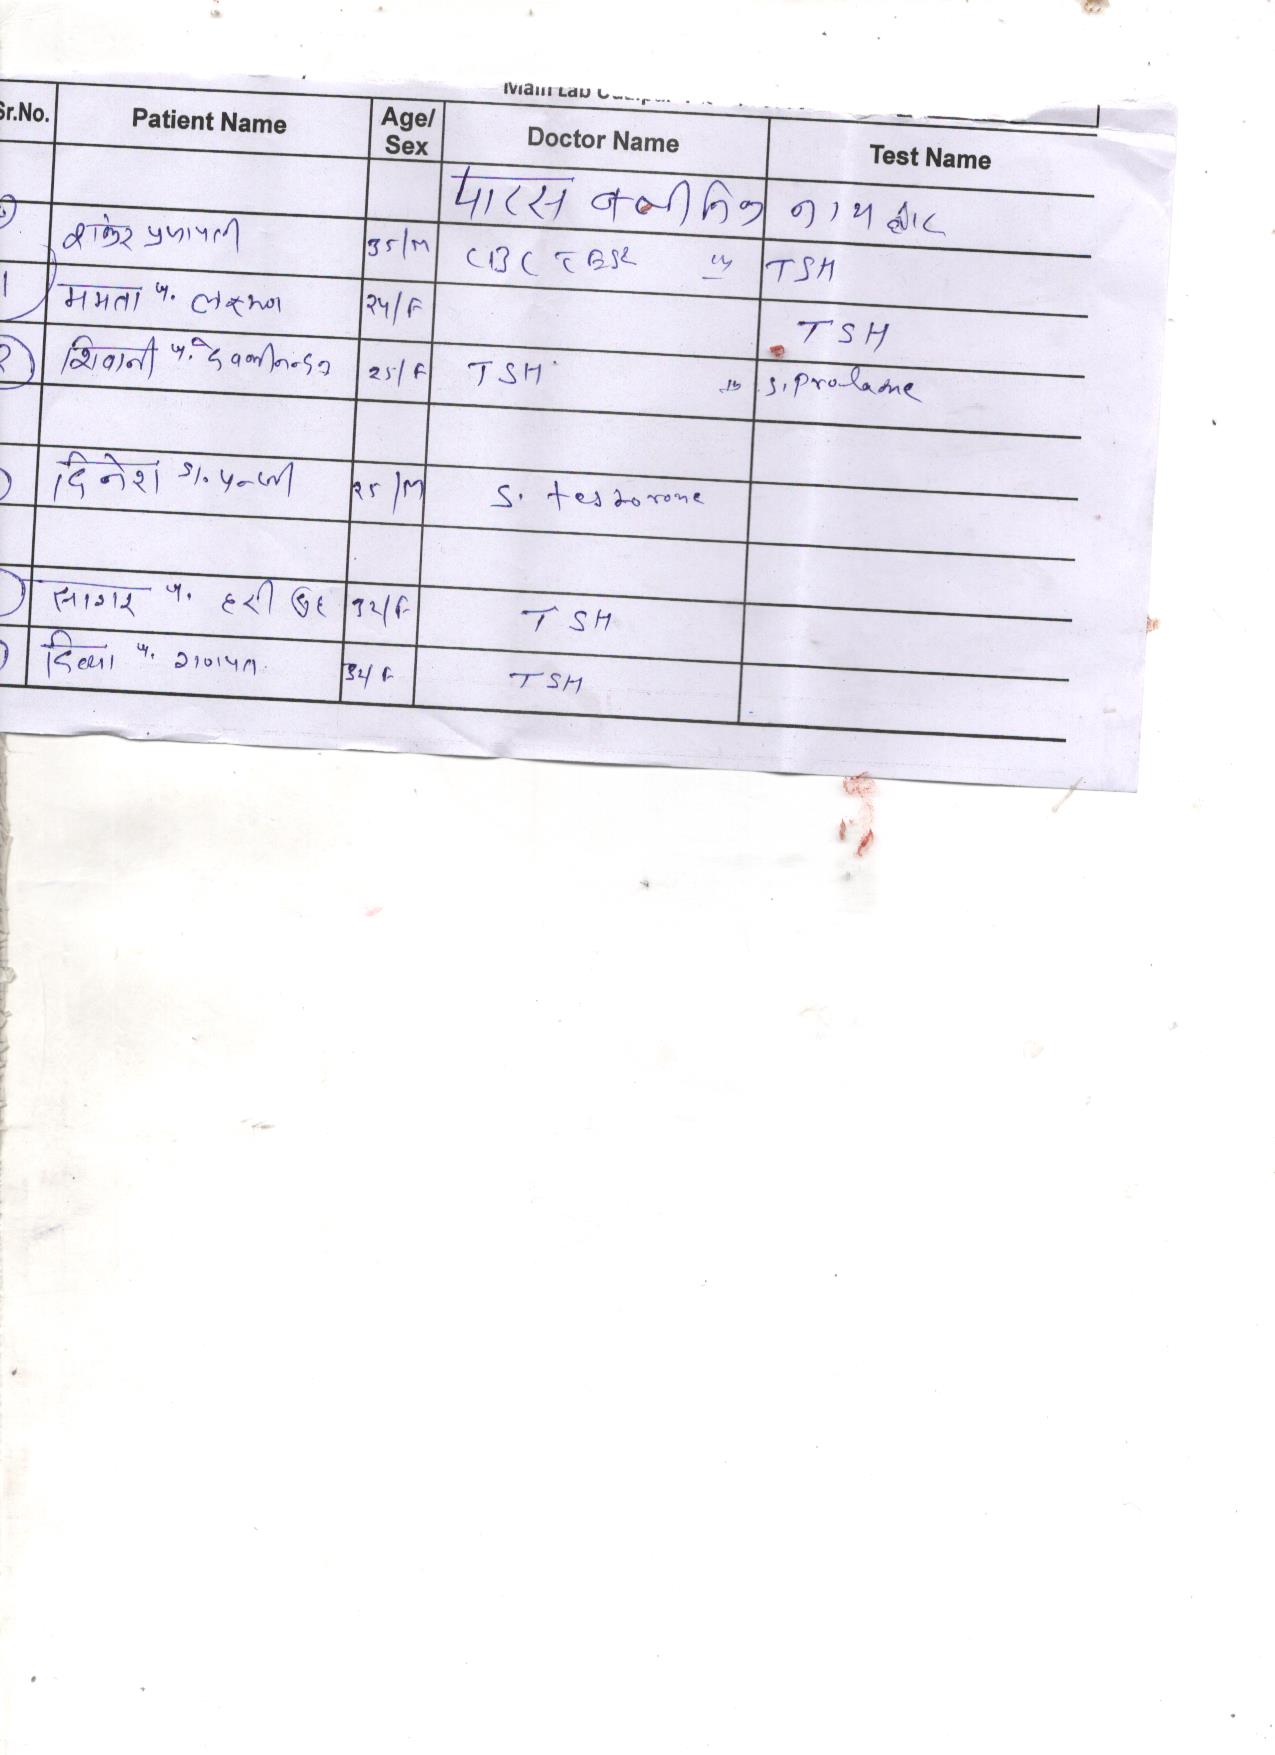 Main Lab
Sr.No. Patient Name Age/ Sex Doctor Name Test Name
पारस क्लीनिक नाथद्वार
शंकर प्रजापती 35/M CBC ESR TSH
1 ममता प. लक्ष्मण 24/F TSH
2 शिवानी प. देवकीनन्दन 25/F TSH S. prolacne
दिनेश 25/M S. testorone
सागर प. हरी सिंह 32/F TSH
दिव्या प. गणपत 34/F TSH